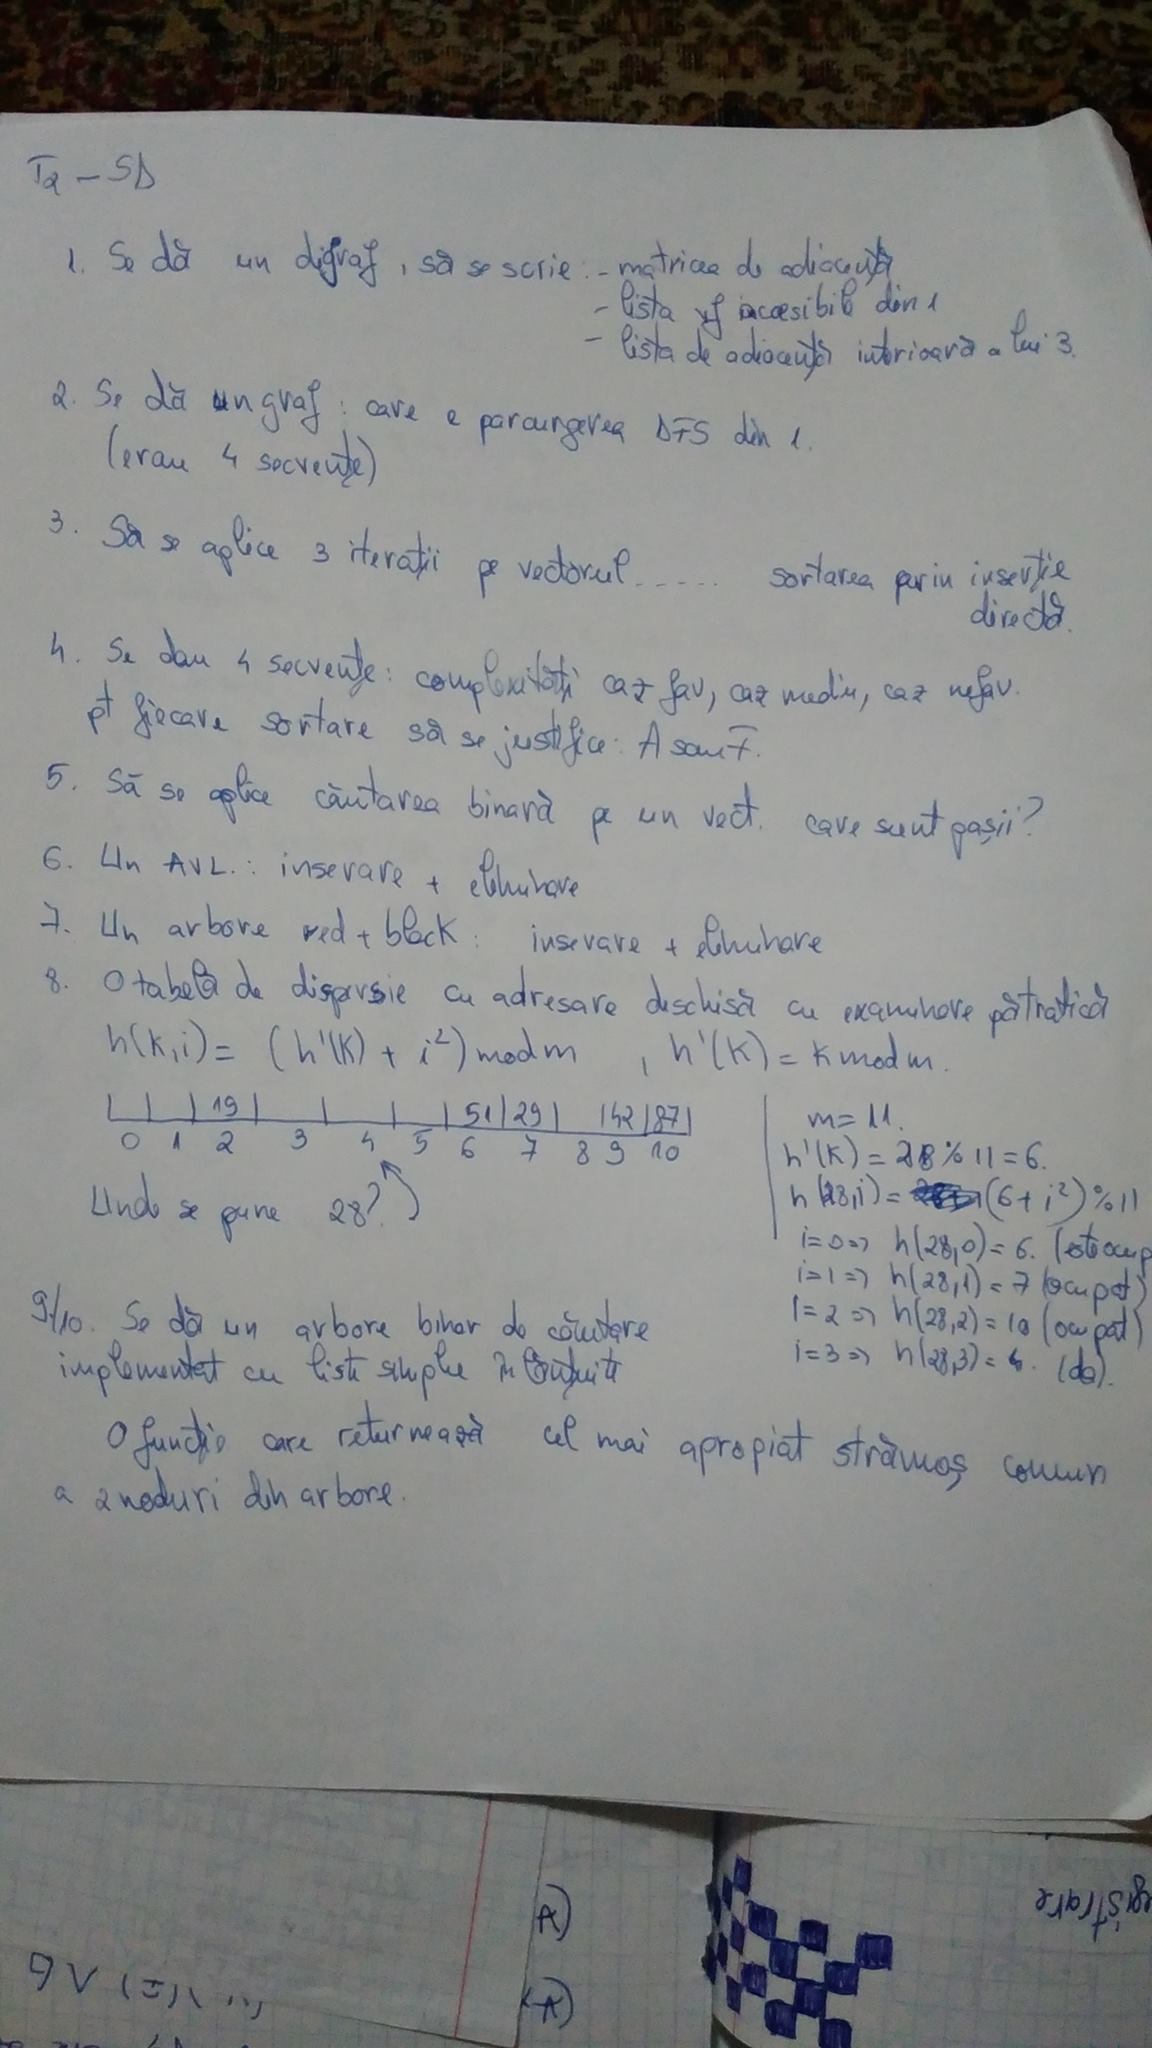 T2 – SD
1. Se dă un digraf, să se scrie: - matricea de adiacență
- lista vf inaccesibile din 1
- lista de adiacență interioară a lui 3.
2. Se dă un graf: care e parcurgerea DFS din 1.
(erau 4 secvențe)
3. Să se aplice 3 iterații pe vectorul ...... sortarea prin inserție
directă.
4. Se dau 4 secvențe: complexități caz fav, caz mediu, caz nefav.
pt fiecare sortare să se justifice: A sau F.
5. Să se aplice căutarea binară pe un vect. care sunt pașii?
6. Un AVL.: inserare + eliminare
7. Un arbore red + black: inserare + eliminare
8. O tabelă de dispersie cu adresare deschisă cu examinare pătratică
h(k,i) = (h'(k) + i²) mod m , h'(k) = k mod m.
19 51 29 42 87
0 1 2 3 4 5 6 7 8 9 10
Unde se pune 28?
m = 11.
h'(k) = 28 % 11 = 6.
h(28,i) = (6 + i²) % 11
i=0 => h(28,0) = 6. (este ocup
i=1 => h(28,1) = 7 (ocupat)
i=2 => h(28,2) = 10 (ocupat)
i=3 => h(28,3) = 4. (da).
9/10. Se dă un arbore binar de căutare
implementat cu liste simple înlănțuite
O funcție care returnează cel mai apropiat strămoș comun
a 2 noduri din arbore.
A)
A)